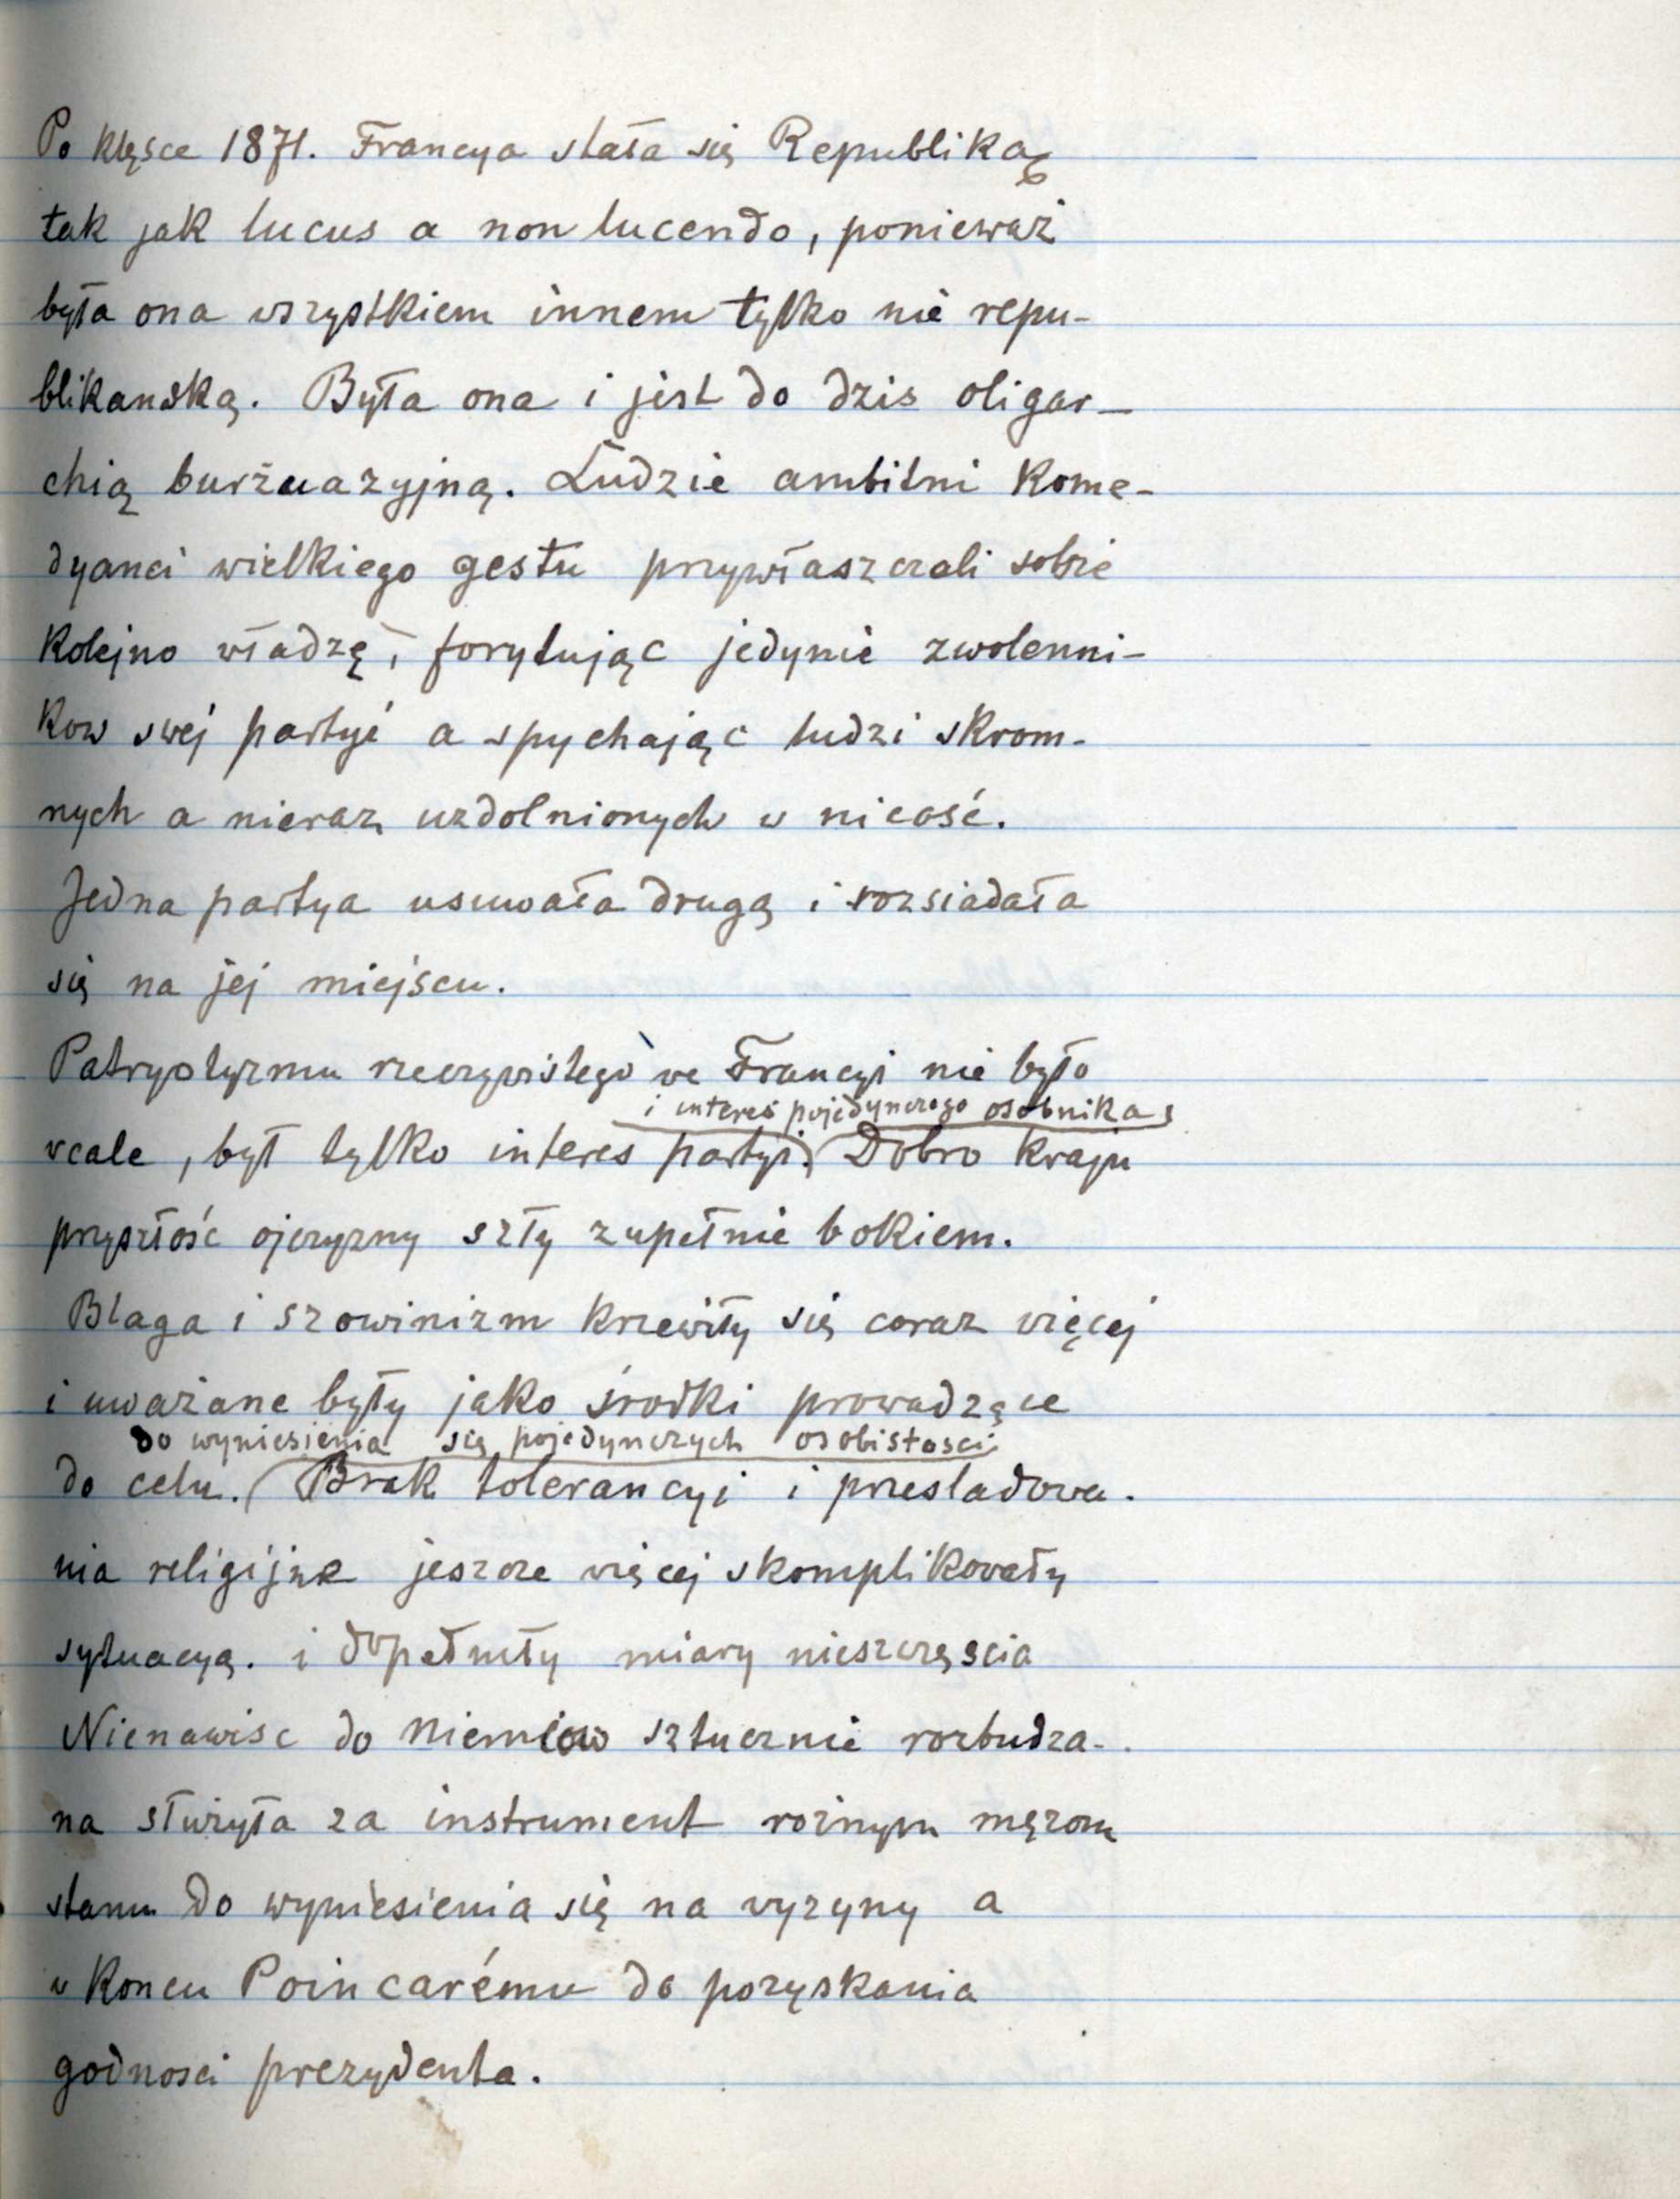 Po klęsce 1871. Francya stała się Republiką
tak jak lucus a non lucendo, ponieważ
była ona wszystkiem innem tylko nie repu-
blikanską. Była ona i jest do dzis oligar-
chią burżuazyjną. Ludzie ambitni kome-
dyanci wielkiego gestu przywłaszczali sobie
kolejno władzę, forytując jedynie zwolenni-
kow swej partyi a spychając ludzi skrom-
nych a nieraz uzdolnionych w nicość.
Jedna partya usuwała drugą i rozsiadała
się na jej miejscu.
Patryotyzmu rzeczywistego we Francyi nie było
i interes pojedynczego osobnika
wcale, był tylko interes partyi. Dobro kraju
przyszłość ojczyzny szły zupełnie bokiem.
Blaga i szowinizm krzewiły się coraz więcej
i uważane były jako środki prowadzące
do wyniesienia się pojedynczych osobistosci
do celu. Brak tolerancyi i przesladowa-
nia religijne jeszcze więcej skomplikowały
sytuacyą. i dopełniły miary nieszczęscia
Nienawisc do Niemcow sztucznie rozbudza-
na służyła za instrument rożnym mężom
stanu do wyniesienia się na wyżyny a
w koncu Poincarému do pozyskania
godnosci prezydenta.